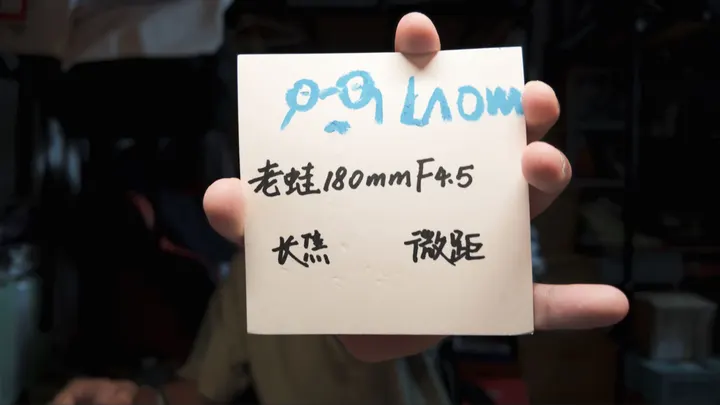 LAOWA
老蛙180mmF4.5
长焦 微距